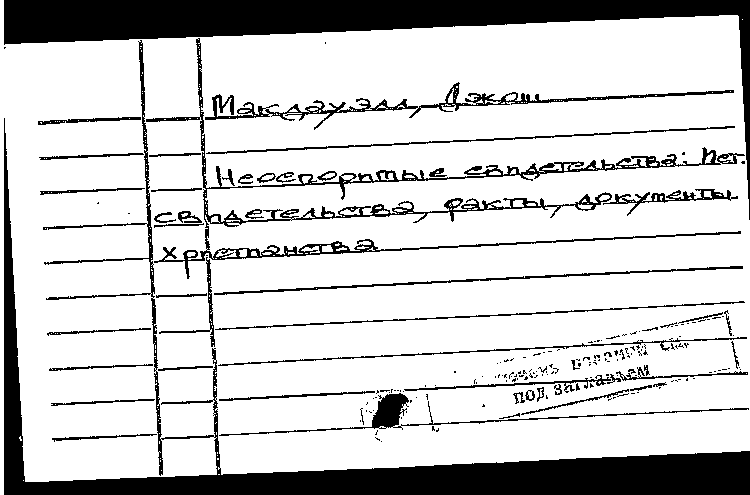 Макдауэлл, Джош
Неоспоримые свидетельства: Ист.
свидетельства, факты, документы
христианства
под заглавием